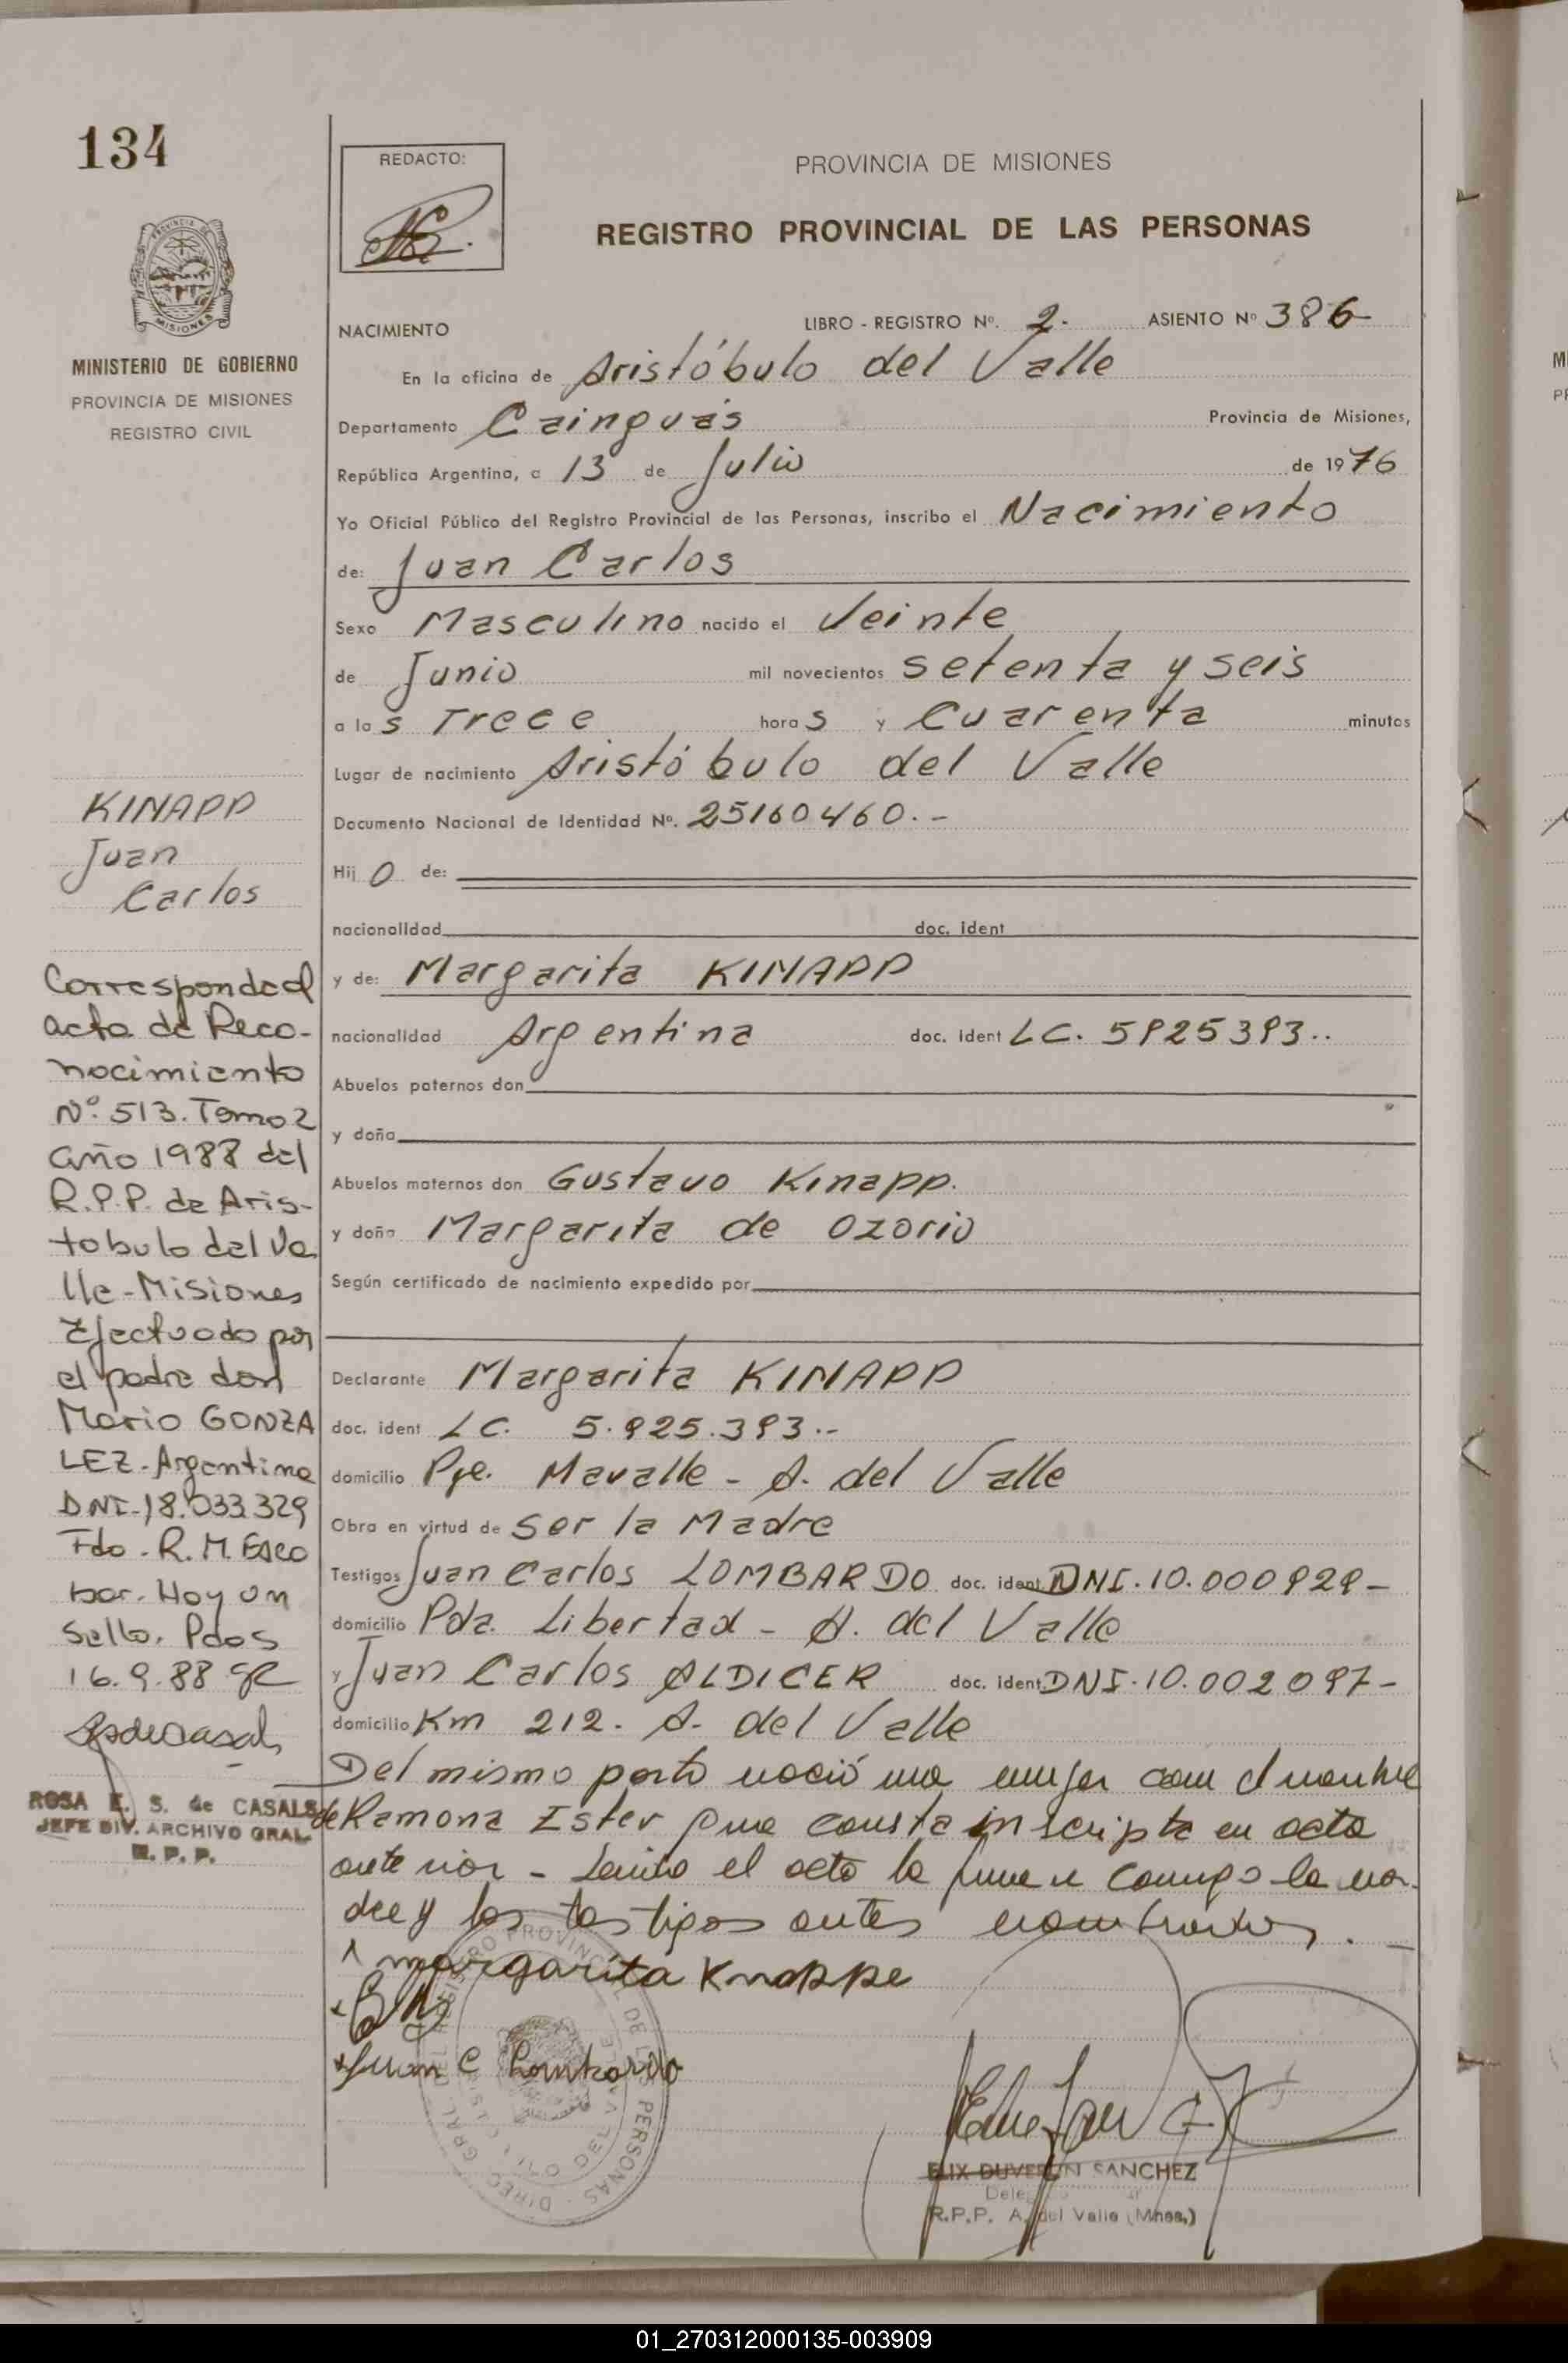 134
REDACTO:
PROVINCIA DE MISIONES
REGISTRO PROVINCIAL DE LAS PERSONAS
PROVINCIA DE
MISIONES
MINISTERIO DE GOBIERNO
PROVINCIA DE MISIONES
REGISTRO CIVIL
NACIMIENTO LIBRO - REGISTRO Nº. 2. ASIENTO Nº 386
En la oficina de Aristóbulo del Valle
Departamento Cainguás Provincia de Misiones,
República Argentina, a 13 de Julio de 1976
Yo Oficial Público del Registro Provincial de las Personas, inscribo el Nacimiento
de: Juan Carlos
Sexo Masculino nacido el Veinte
de Junio mil novecientos setenta y seis
a las Trece horas y Cuarenta minutos
Lugar de nacimiento Aristóbulo del Valle
Documento Nacional de Identidad Nº. 25160460.-
Hijo de:
nacionalidad doc. ident
y de: Margarita KINAPP
nacionalidad Argentina doc. ident LC. 5925393..
Abuelos paternos don
y doña
Abuelos maternos don Gustavo Kinapp.
y doña Margarita de Ozorio
Según certificado de nacimiento expedido por
Declarante Margarita KINAPP
doc. ident LC. 5.925.393.-
domicilio Pje. Mavalle - A. del Valle
Obra en virtud de ser la Madre
Testigos Juan Carlos LOMBARDO doc. ident DNI. 10.000929-
domicilio Pda. Libertad - A. del Valle
y Juan Carlos ALDICER doc. ident DNI. 10.002097-
domicilio Km 212. A. del Valle
Del mismo parto nació una mujer con el nombre
de Ramona Ester que consta inscripta en acta
anterior - Leida el acta la firma conmigo la ma-
dre y los testigos antes nombrados. -
margarita Knappe
Juan C Lombardo
KINAPP
Juan
Carlos
Corresponde al
acta de Reco-
nocimiento
Nº. 513. Tomo 2
año 1988 del
R.P.P. de Aris-
tobulo del Va
lle - Misiones
Efectuado por
el padre don
Mario GONZA
LEZ - Argentina
DNI - 18.033.329
Fdo. R. M. Esco
bar. Hoy un
sello. Pdos
16.9.88
ROSA E. S. de CASALS
JEFE DIV. ARCHIVO GRAL.
R. P. P.
FELIX DUVERLIN SANCHEZ
R.P.P. A. del Valle (Mnes.)
01_270312000135-003909